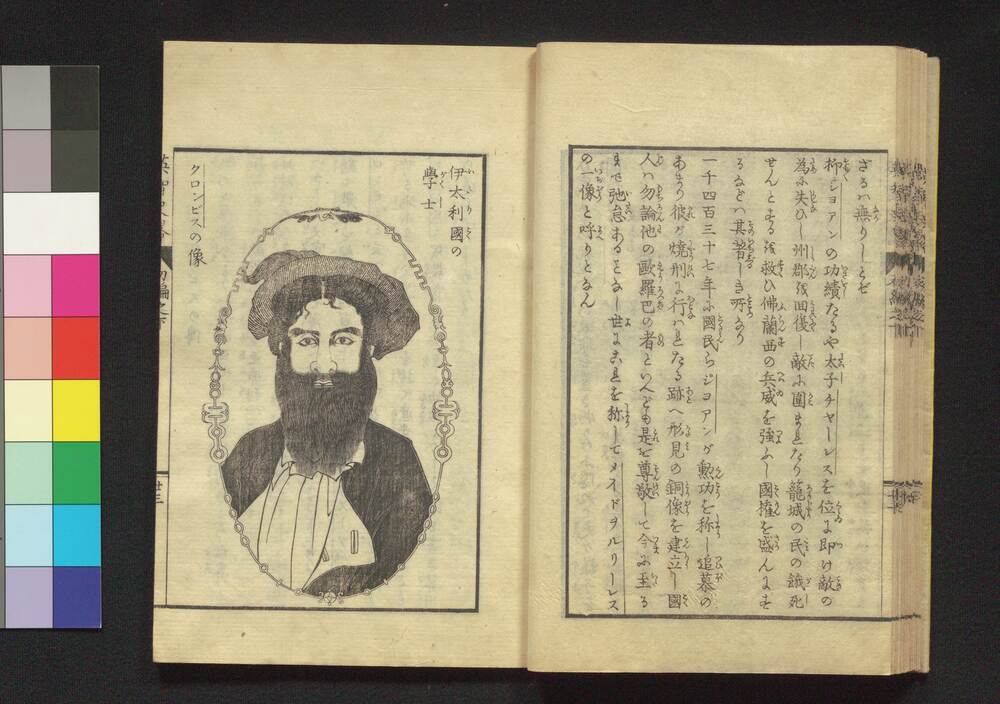 ざるは無りしとぞ
抑ジヨアンの功績たるや太子チャーレスを位に即け敵の
為に失ひし州郡を回復し敵に圍まれたり籠城の民の餓死
せんとするを救ひ佛蘭西の兵威を強ふし國權を盛んにす
るなどは其著しき所なり
一千四百三十七年に國民らジヨアンが勲功を称し追慕の
あまり彼が焼刑に行はれたる跡へ形見の銅像を建立し國
人は勿論他の歐羅巴の者といへども是を尊敬して今に至る
まで弛怠あることなし世にこれを称してメイドヲルリーレス
の一像と呼りとなん
伊太利國の
學士
クロンビスの像
初編之下
廿三